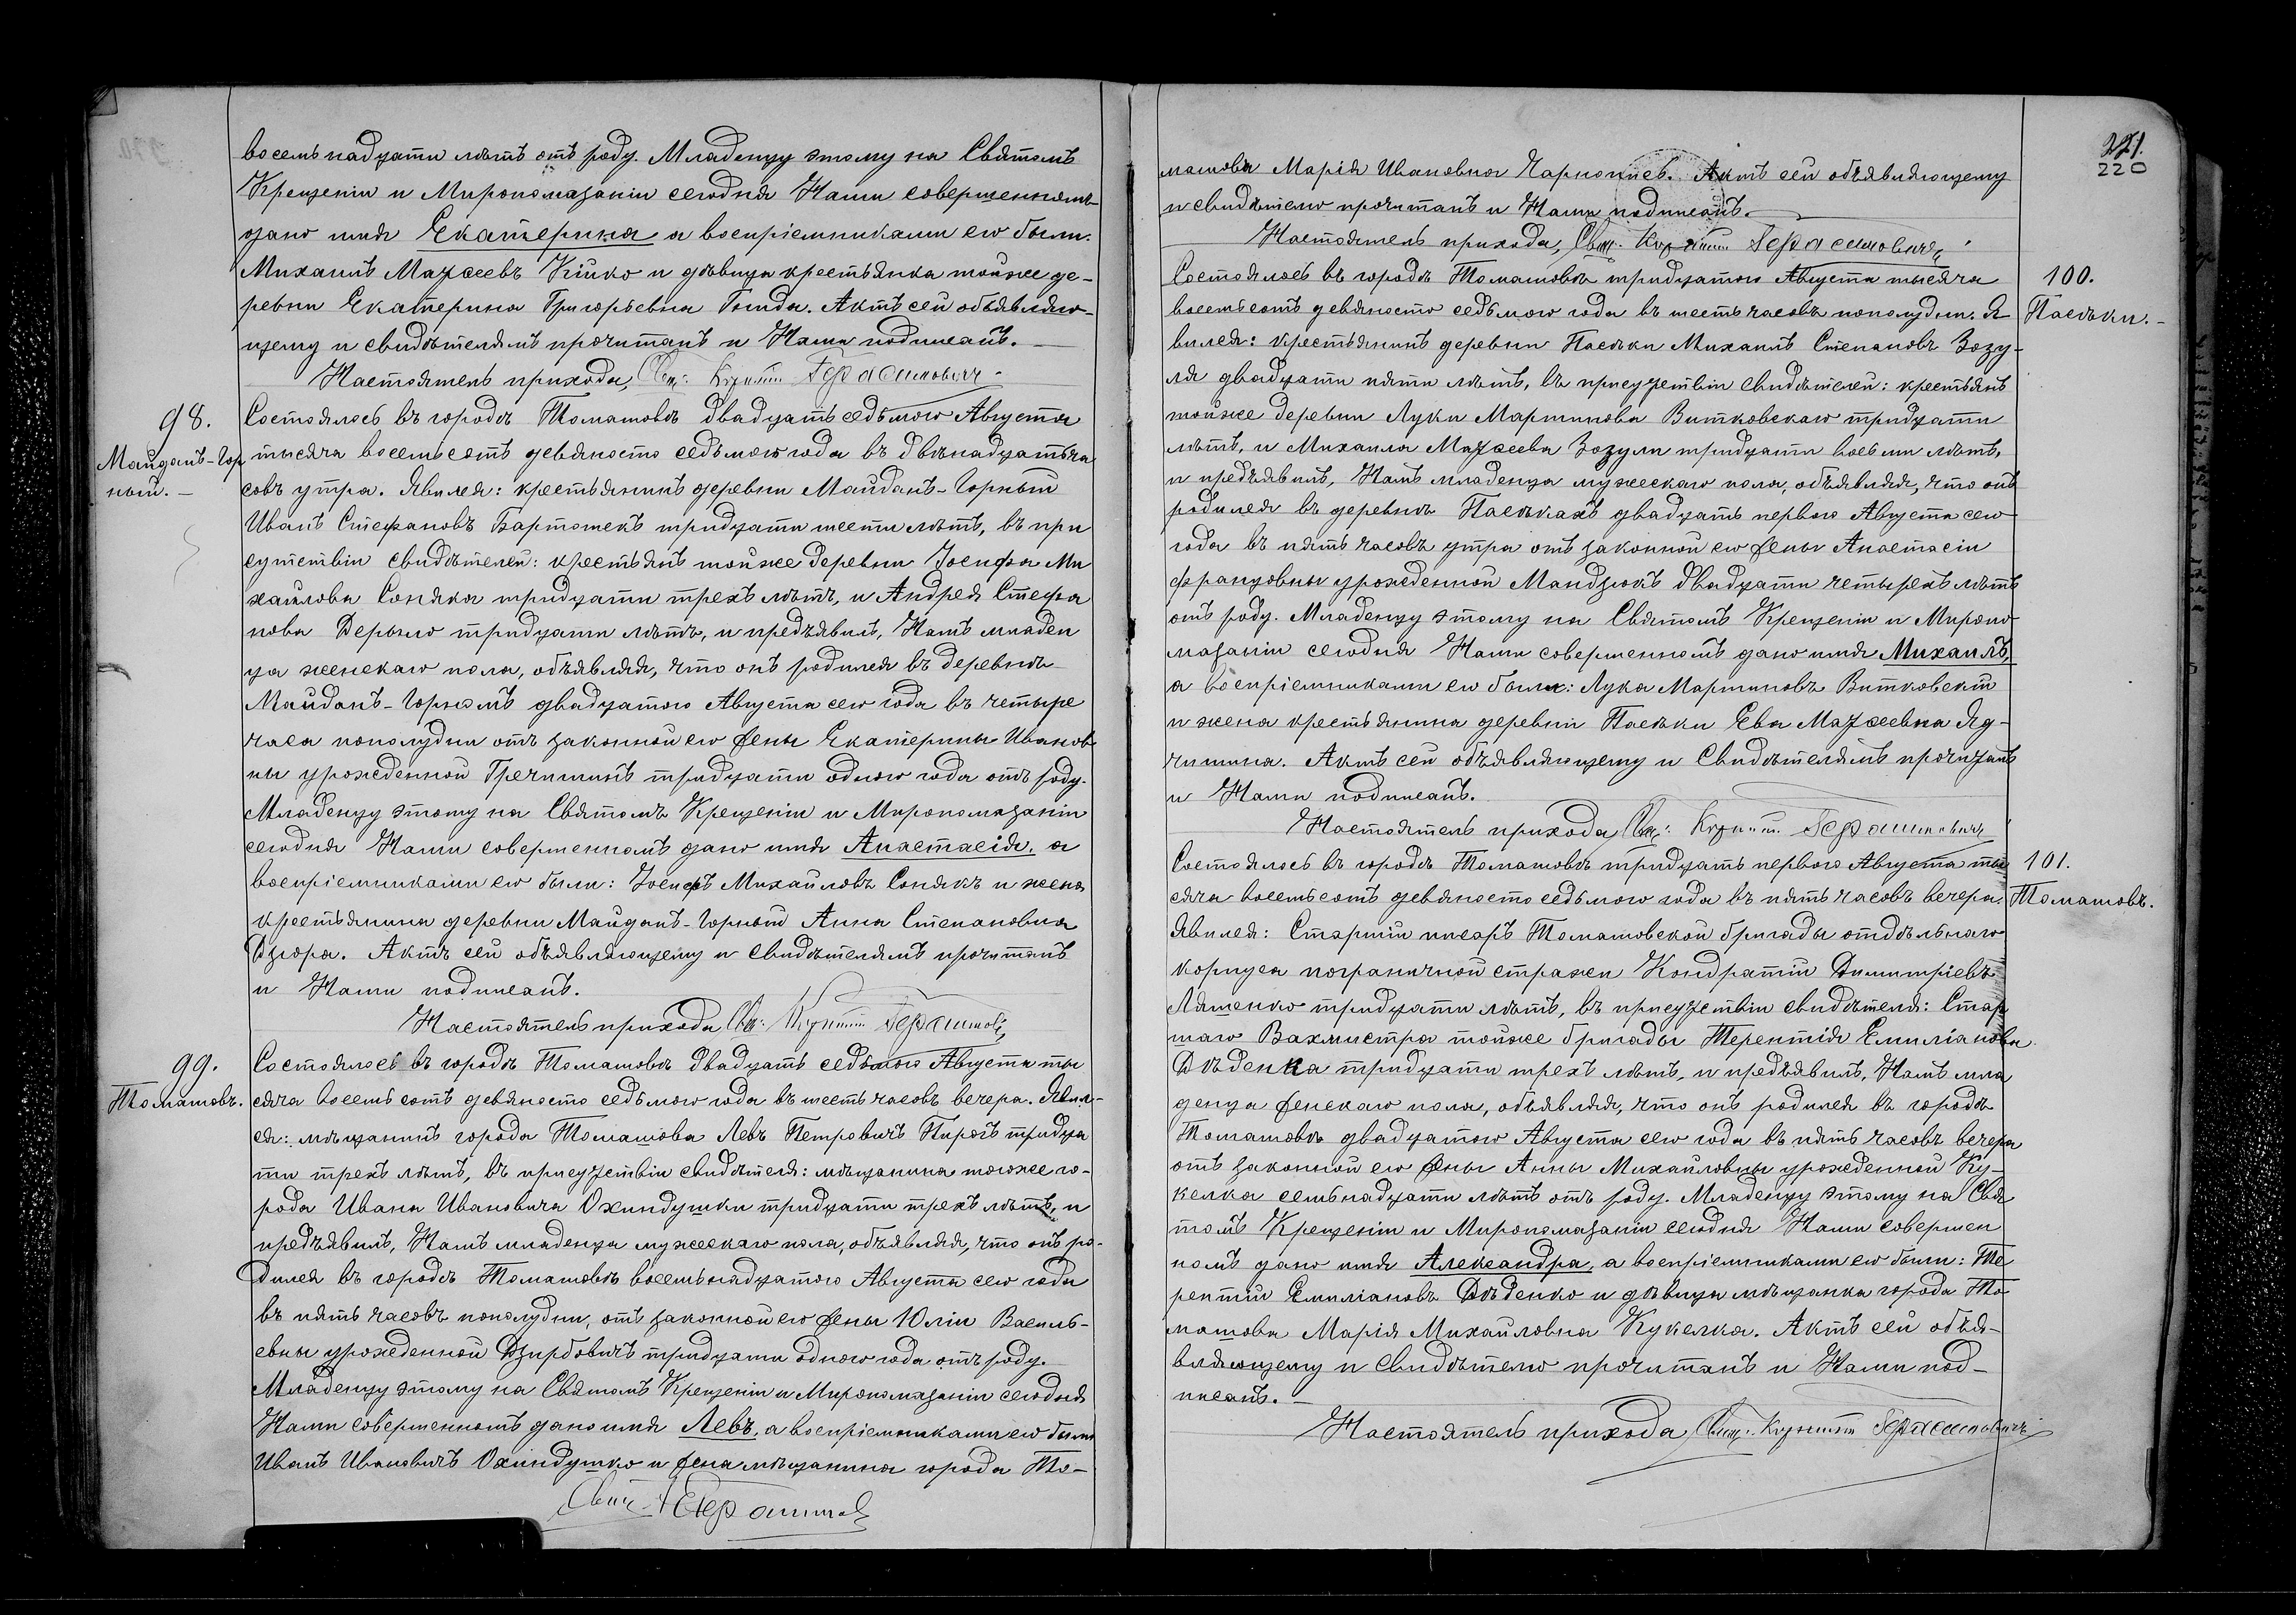 восемьнадцати лѣтъ отъ роду. Младенцу этому на Святомъ
Крещеніи и Миропомазаніи сегодня Нами совершенномъ
дано имя Екатерина а воспріемниками его были:
Михаилъ Маѳеевъ Кійко и дѣвица крестьянка тойже де-
ревни Екатерина Григорьевна Гнида. Актъ сей объявляю-
щему и свидѣтелямъ прочитанъ и Нами подписанъ. —
Настоятель прихода, Свящ: Герасимовичъ
98.
Майданъ-Гор
ный. —
Состоялось въ городѣ Томашовѣ двадцать седьмого Августа
тысяча восемьсотъ девяносто седьмого года въ двѣнадцать ча
совъ утра. Явился: крестьянинъ деревни Майданъ-Горный
Иванъ Стефановъ Бартошекъ тридцати шести лѣтъ, въ при
сутствіи свидѣтелей: крестьянъ тойже деревни Іосифа Ми
хайлова Соняка тридцати трехъ лѣтъ, и Андрея Стефа
нова Дерыло тридцати лѣтъ, и предъявилъ Намъ младен
ца женскаго пола, объявляя, что онъ родился въ деревнѣ
Майданъ-Горномъ двадцатого Августа сего года въ четыре
часа пополудни отъ законной его жены Екатерины Иванов
ны урожденной Гречишинъ тридцати одного года отъ роду.
Младенцу этому на Святомъ Крещеніи и Миропомазаніи
сегодня Нами совершенномъ дано имя Анастасія, а
воспріемниками его были: Іосифъ Михайловъ Сонякъ и жена
крестьянина деревни Майданъ-Горный Анна Степановна
Дзюра. Актъ сей объявляющему и свидѣтелямъ прочитанъ
и Нами подписанъ.
Настоятель прихода Свящ: Герасимов
99.
Томашовъ.
Состоялось въ городѣ Томашовѣ двадцать седьмого Августа ты
сяча восемьсотъ девяносто седьмого года въ шесть часовъ вечера. Явил-
ся: мѣщанинъ города Томашова Левъ Петровичъ Пирогъ тридца
ти трехъ лѣтъ, въ присутствіи свидѣтеля: мѣщанина тогоже го-
рода Ивана Ивановича Охиндушки тридцати трехъ лѣтъ, и
предъявилъ Намъ младенца мужескаго пола, объявляя, что онъ ро-
дился въ городѣ Томашовѣ восемьнадцатого Августа сего года
въ пять часовъ пополудни, отъ законной его жены Юліи Василь-
евны урожденной Дзирбовичъ тридцати одного года отъ роду.
Младенцу этому на Святомъ Крещеніи и Миропомазаніи сегодня
Нами совершенномъ дано имя Левъ, а воспріемниками его были
Иванъ Ивановичъ Охиндушко и жена мѣщанина города То-
Свящ. Герасимов
221.
220
машова Марія Ивановна Чарнопись. Актъ сей объявляющему
и свидѣтелю прочитанъ и Нами подписанъ. —
Настоятель прихода, Свящ. Герасимовичъ
100.
Пасѣки. —
Состоялось въ городѣ Томашовѣ тридцатого Августа тысяча
восемьсотъ девяносто седьмого года въ шесть часовъ пополудни. Я-
вился: крестьянинъ деревни Пасѣки Михаилъ Степановъ Зозу-
ля двадцати пяти лѣтъ, въ присутствіи свидѣтелей: крестьянъ
тойже деревни Луки Мартинова Витковскаго тридцати
лѣтъ, и Михаила Маѳеева Зозули тридцати восьми лѣтъ,
и предъявилъ Намъ младенца мужескаго пола, объявляя, что онъ
родился въ деревнѣ Пасѣкахъ двадцать первого Августа сего
года въ пять часовъ утра отъ законной его жены Анастасіи
Францовны урожденной Мандзюкъ двадцати четырехъ лѣтъ
отъ роду. Младенцу этому на Святомъ Крещеніи и Миропо
мазаніи сегодня Нами совершенномъ дано имя Михаилъ,
а воспріемниками его были: Лука Мартиновъ Витковскій
и жена крестьянина деревни Пасѣки Ева Маѳеевна Яд-
чишина. Актъ сей объявляющему и свидѣтелямъ прочитанъ
и Нами подписанъ.
Настоятель прихода Свящ: Герасимовичъ
101.
Томашовъ.
Состоялось въ городѣ Томашовѣ тридцать первого Августа ты
сяча восемьсотъ девяносто седьмого года въ пять часовъ вечера.
Явился: Старшій писарь Томашовской бригады отдѣльнаго
корпуса пограничной стражи Кондратій Димитріевъ
Ляшенко тридцати лѣтъ, въ присутствіи свидѣтеля: Стар
шаго Вахмистра тойже бригады Терентія Емиліанова
Дѣденка тридцати трехъ лѣтъ, и предъявилъ Намъ мла
денца женскаго пола, объявляя, что онъ родился въ городѣ
Томашовѣ двадцатого Августа сего года въ пять часовъ вечера
отъ законной его жены Анны Михайловны урожденной Ку-
келка семьнадцати лѣтъ отъ роду. Младенцу этому на Свя
томъ Крещеніи и Миропомазаніи сегодня Нами совершен
номъ дано имя Александра, а воспріемниками его были: Те
рентій Емиліановъ Дѣденко и дѣвица мѣщанка города То
машова Марія Михайловна Кукелка. Актъ сей объя-
вляющему и свидѣтелю прочитанъ и Нами под-
писанъ. —
Настоятель прихода Свящ. Герасимовичъ